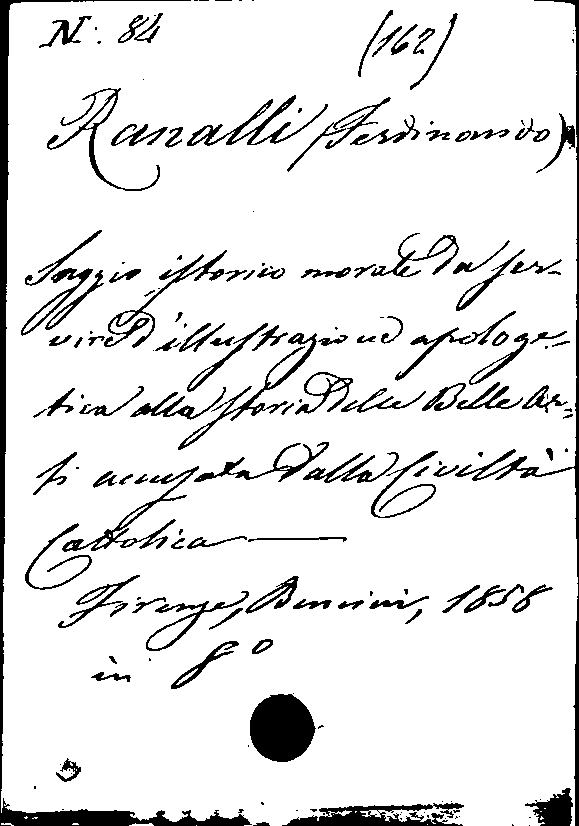 N.: 84 (162)
Ranalli (Ferdinando)
Saggio istorico morale da ser-
vire d'illustrazione apologe-
tica alla storia delle Belle Ar-
ti accusata dalla Civiltà
Cattolica —
Firenze, Bencini, 1858
in 8°